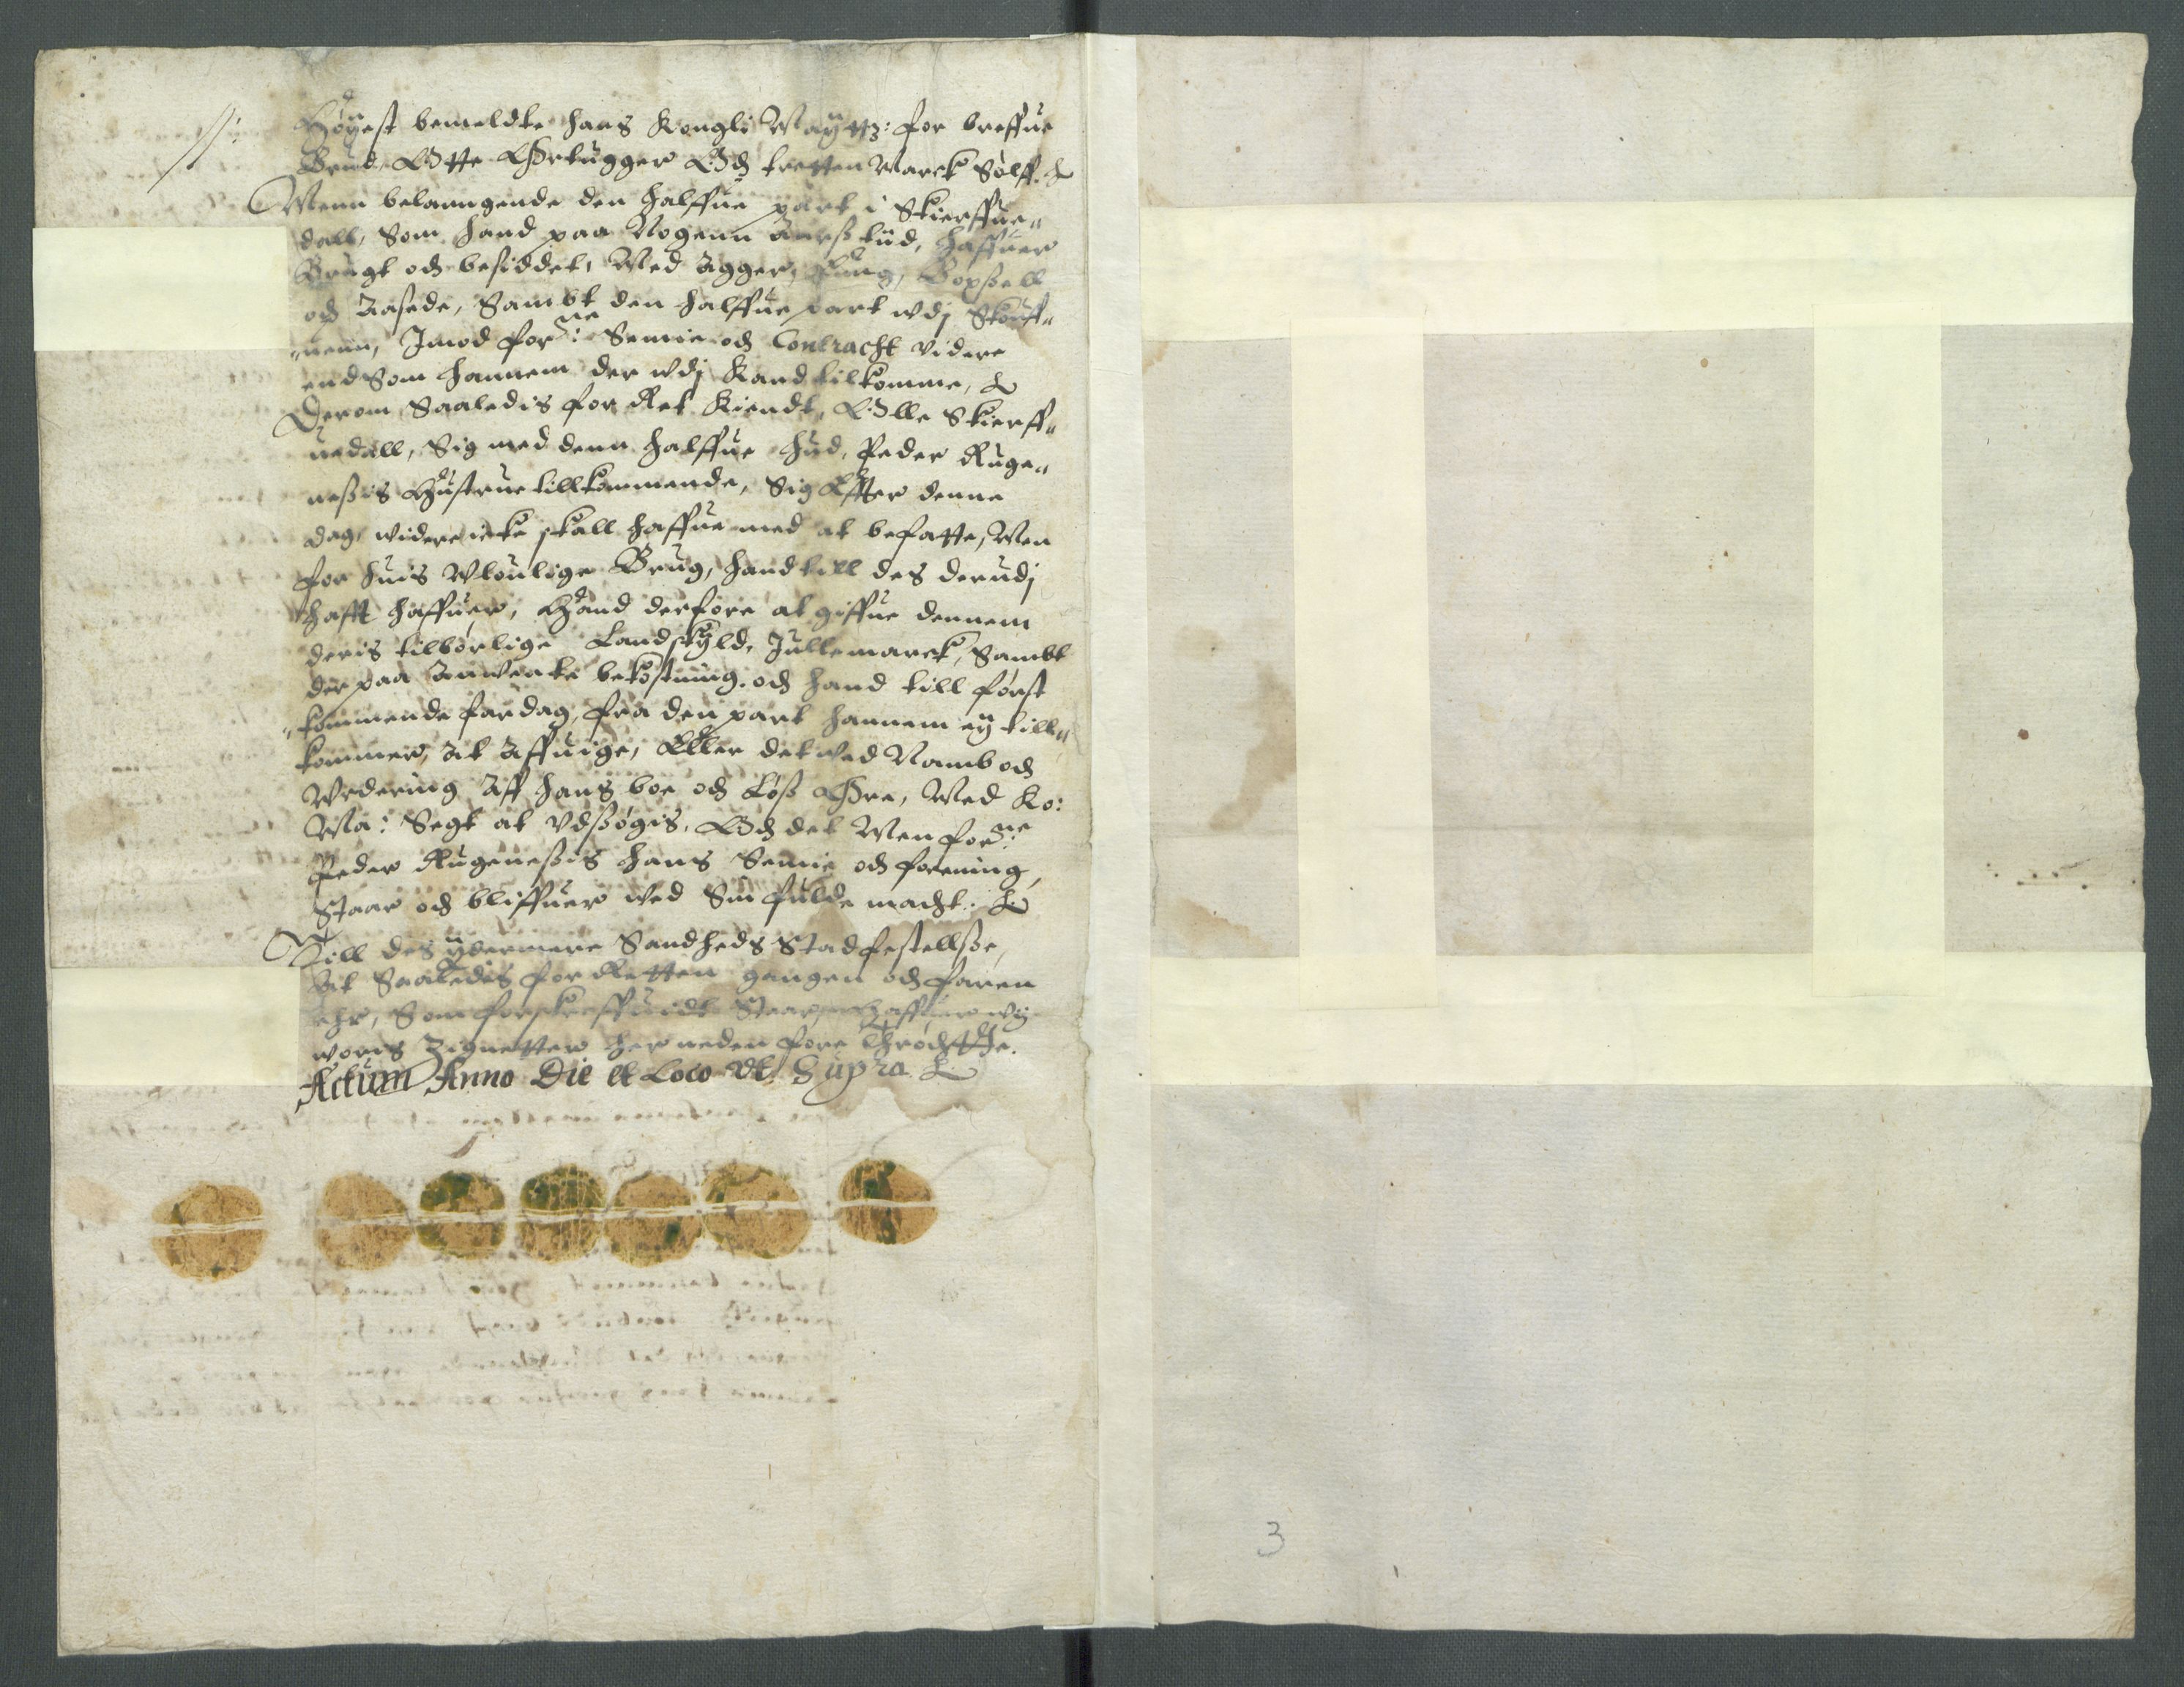 Høÿest bemeldte hans Kongli Maÿttz: for breffue
Brud, Otte Ørtugger Och tretten Marck Sølff. &
Menn belanngende den halffue part i Skierffue„
dall, Som hand paa Nogenn aarß tiid, haffuer
Brugt och besiddet, Med agger, Eung, Bopßell
och aasede, Sambt den halffue part wdj Skouff„
„uenn, Imod forne: Semie och Contracht videre
end Som hannem der wdj Kand tilkomme, &
Derom Saaledis for Ret Kiendt, Olle Skierff„
uedall, Sig med denn halffue hud, Peder Ruge„
neßis Hustrue tillkommende, Sig Effter denne
dag, widere icke skall haffue med at befatte, Men
for huis Wloulige Brug, hand till des derudj
hafft haffuer, Hand derfore at giffue dennem
deris tilbørlige Landskÿld, Jullemarck, Sambt
der paa anwente bekostning. och hand till først
„kommende fardag, fra den part hannem eÿ till„
kommer, at affuige, Eller det med Namb och
Wrdering aff hans boe och Løß Øre, Med Ko:
Ma: Segt at vdsøgis, Och det Men forne:
Peder Rugeneßis hans Semie och forening,
Staar och bliffuer wed Sin fulde macht. &
Till des ÿdermere Sandheds Stadfestellße,
At Saaledis for Retten gangen och faren
ehr, Som forskreffuidt Staar, Haffuer wij
woris Zignetter her neden fore thrÿchtte.
Actum Anno Die et Loco vt Supra &
3